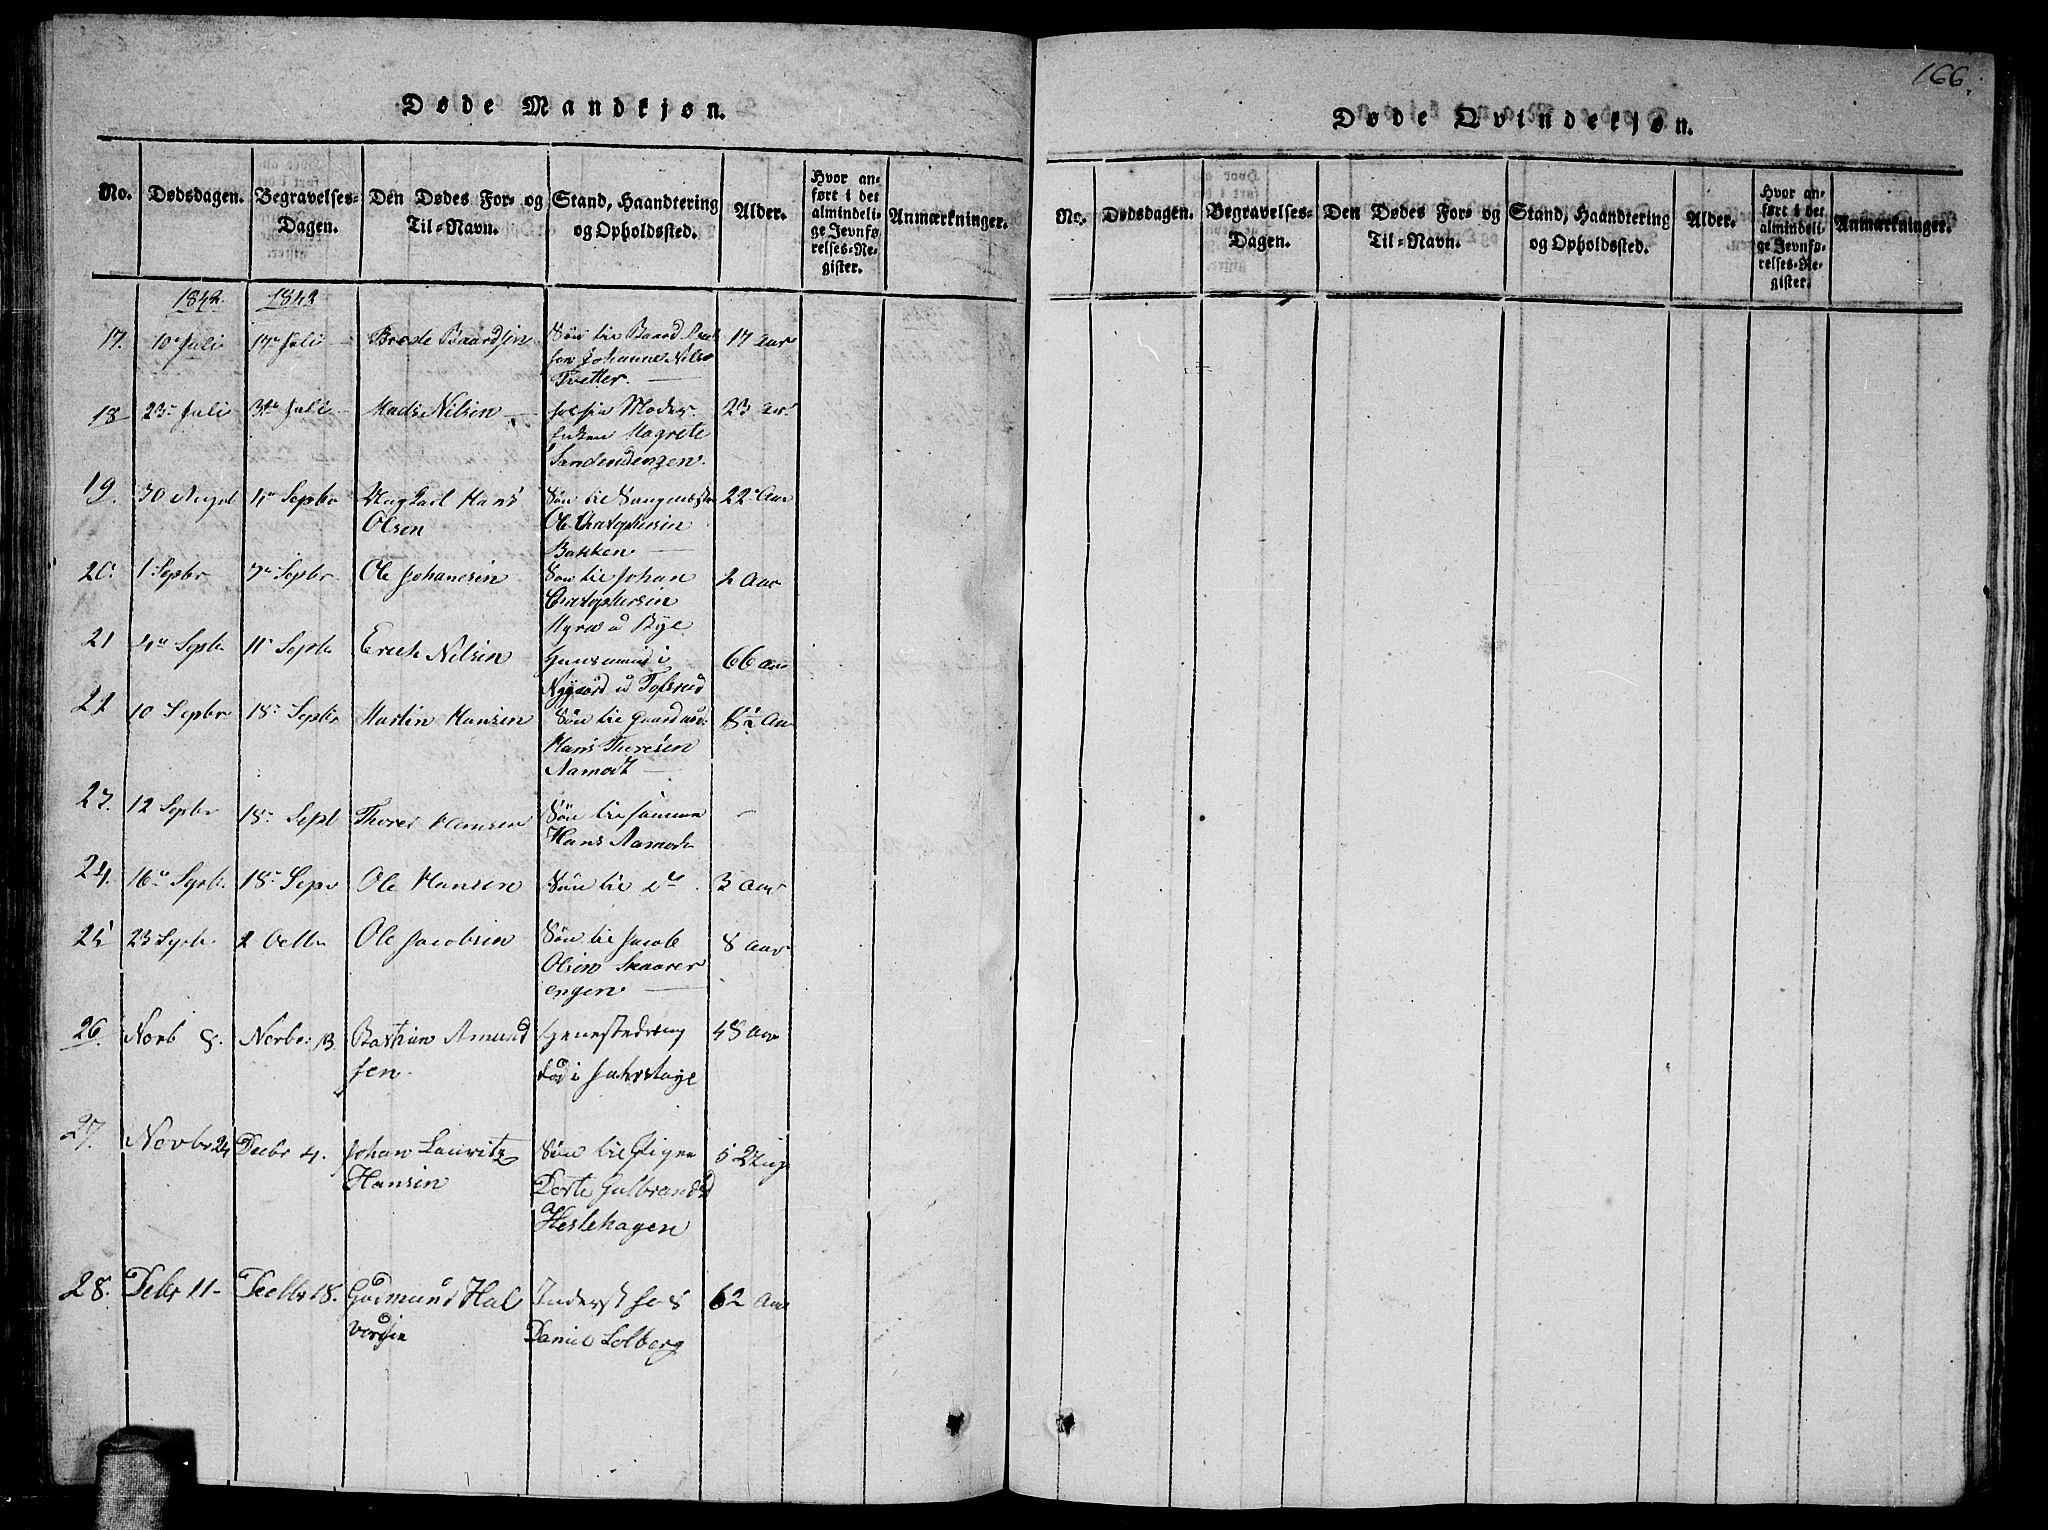 166.
Døde Mandkjøn.
No. Dødsdagen. Begravelses-Dagen. Den Dødes For- og Til-Navn. Stand, Haandtering og Opholdssted. Alder. Hvor anført i det almindelige Jevnførelses-Register. Anmærkninger.
1842. 1842
17. 10 Juli 17 Juli Brede Baardsen Søn til Baard 17 aar
Johanne Nils
Tvetter.
18 23 Juli 31 Juli Mads Nilsen Moder 23 ar
Magrete
Sandendengen.
19. 30 Augst 4 Septbr Hans Søn til 22 Aar
Olsen Ole Christophersen
Bakken
20. 1 Septbr 7 Septbr Ole Johanesen Søn til Johan 2 Aar
Christophersen
Myra u Bye
21 4 Septbr 11 Septbr Erich Nilsen Huusmand i 66 aar
Nygaard u Tofsrud
22 10 Septbr 18 Septbr Martin Hansen Søn til Gaardmd Aar
Hans Thoresen
Aamodt
23. 12 Septbr 18 Sept Thorer Hansen Søn til samme
Hans Aamodt
24. 16 Septb. 18 Sepbr Ole Hansen Søn til do 3 Aar
25 23 Septb. 2 Octbr Ole Jacobsen Søn til Jacob 8 aar
Olsen Skaarer
engen
26. Novb 8. Novbr 13. Bastian Amund 48 Aar
sen. død i
27. Novbr 24 Decbr 4. Johan Lauritz Søn til Pigen 5 Dage
Hansen Dorte Gulbrandsd
Heslehagen
28. Debr 11 Decbr 18. Gudmund Hal Inderst hos 62 Aar
vorsen Daniel Solberg
Døde Qvindekjøn.
No. Dødsdagen. Begravelses-Dagen. Den Dødes For- og Til-Navn. Stand, Haandtering og Opholdssted. Alder. Hvor anført i det almindelige Jevnførelses-Register. Anmærkninger.